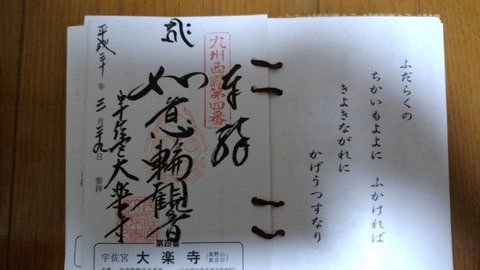 ふだらくの
ちかいもよよに ふかければ
きよきながれに
かげうつすなり
奉拝
九州西國第四番
如意輪観音
大楽寺
年 三月 九日 参拝
第四番
宇佐宮 大楽寺 (高野山真言宗)